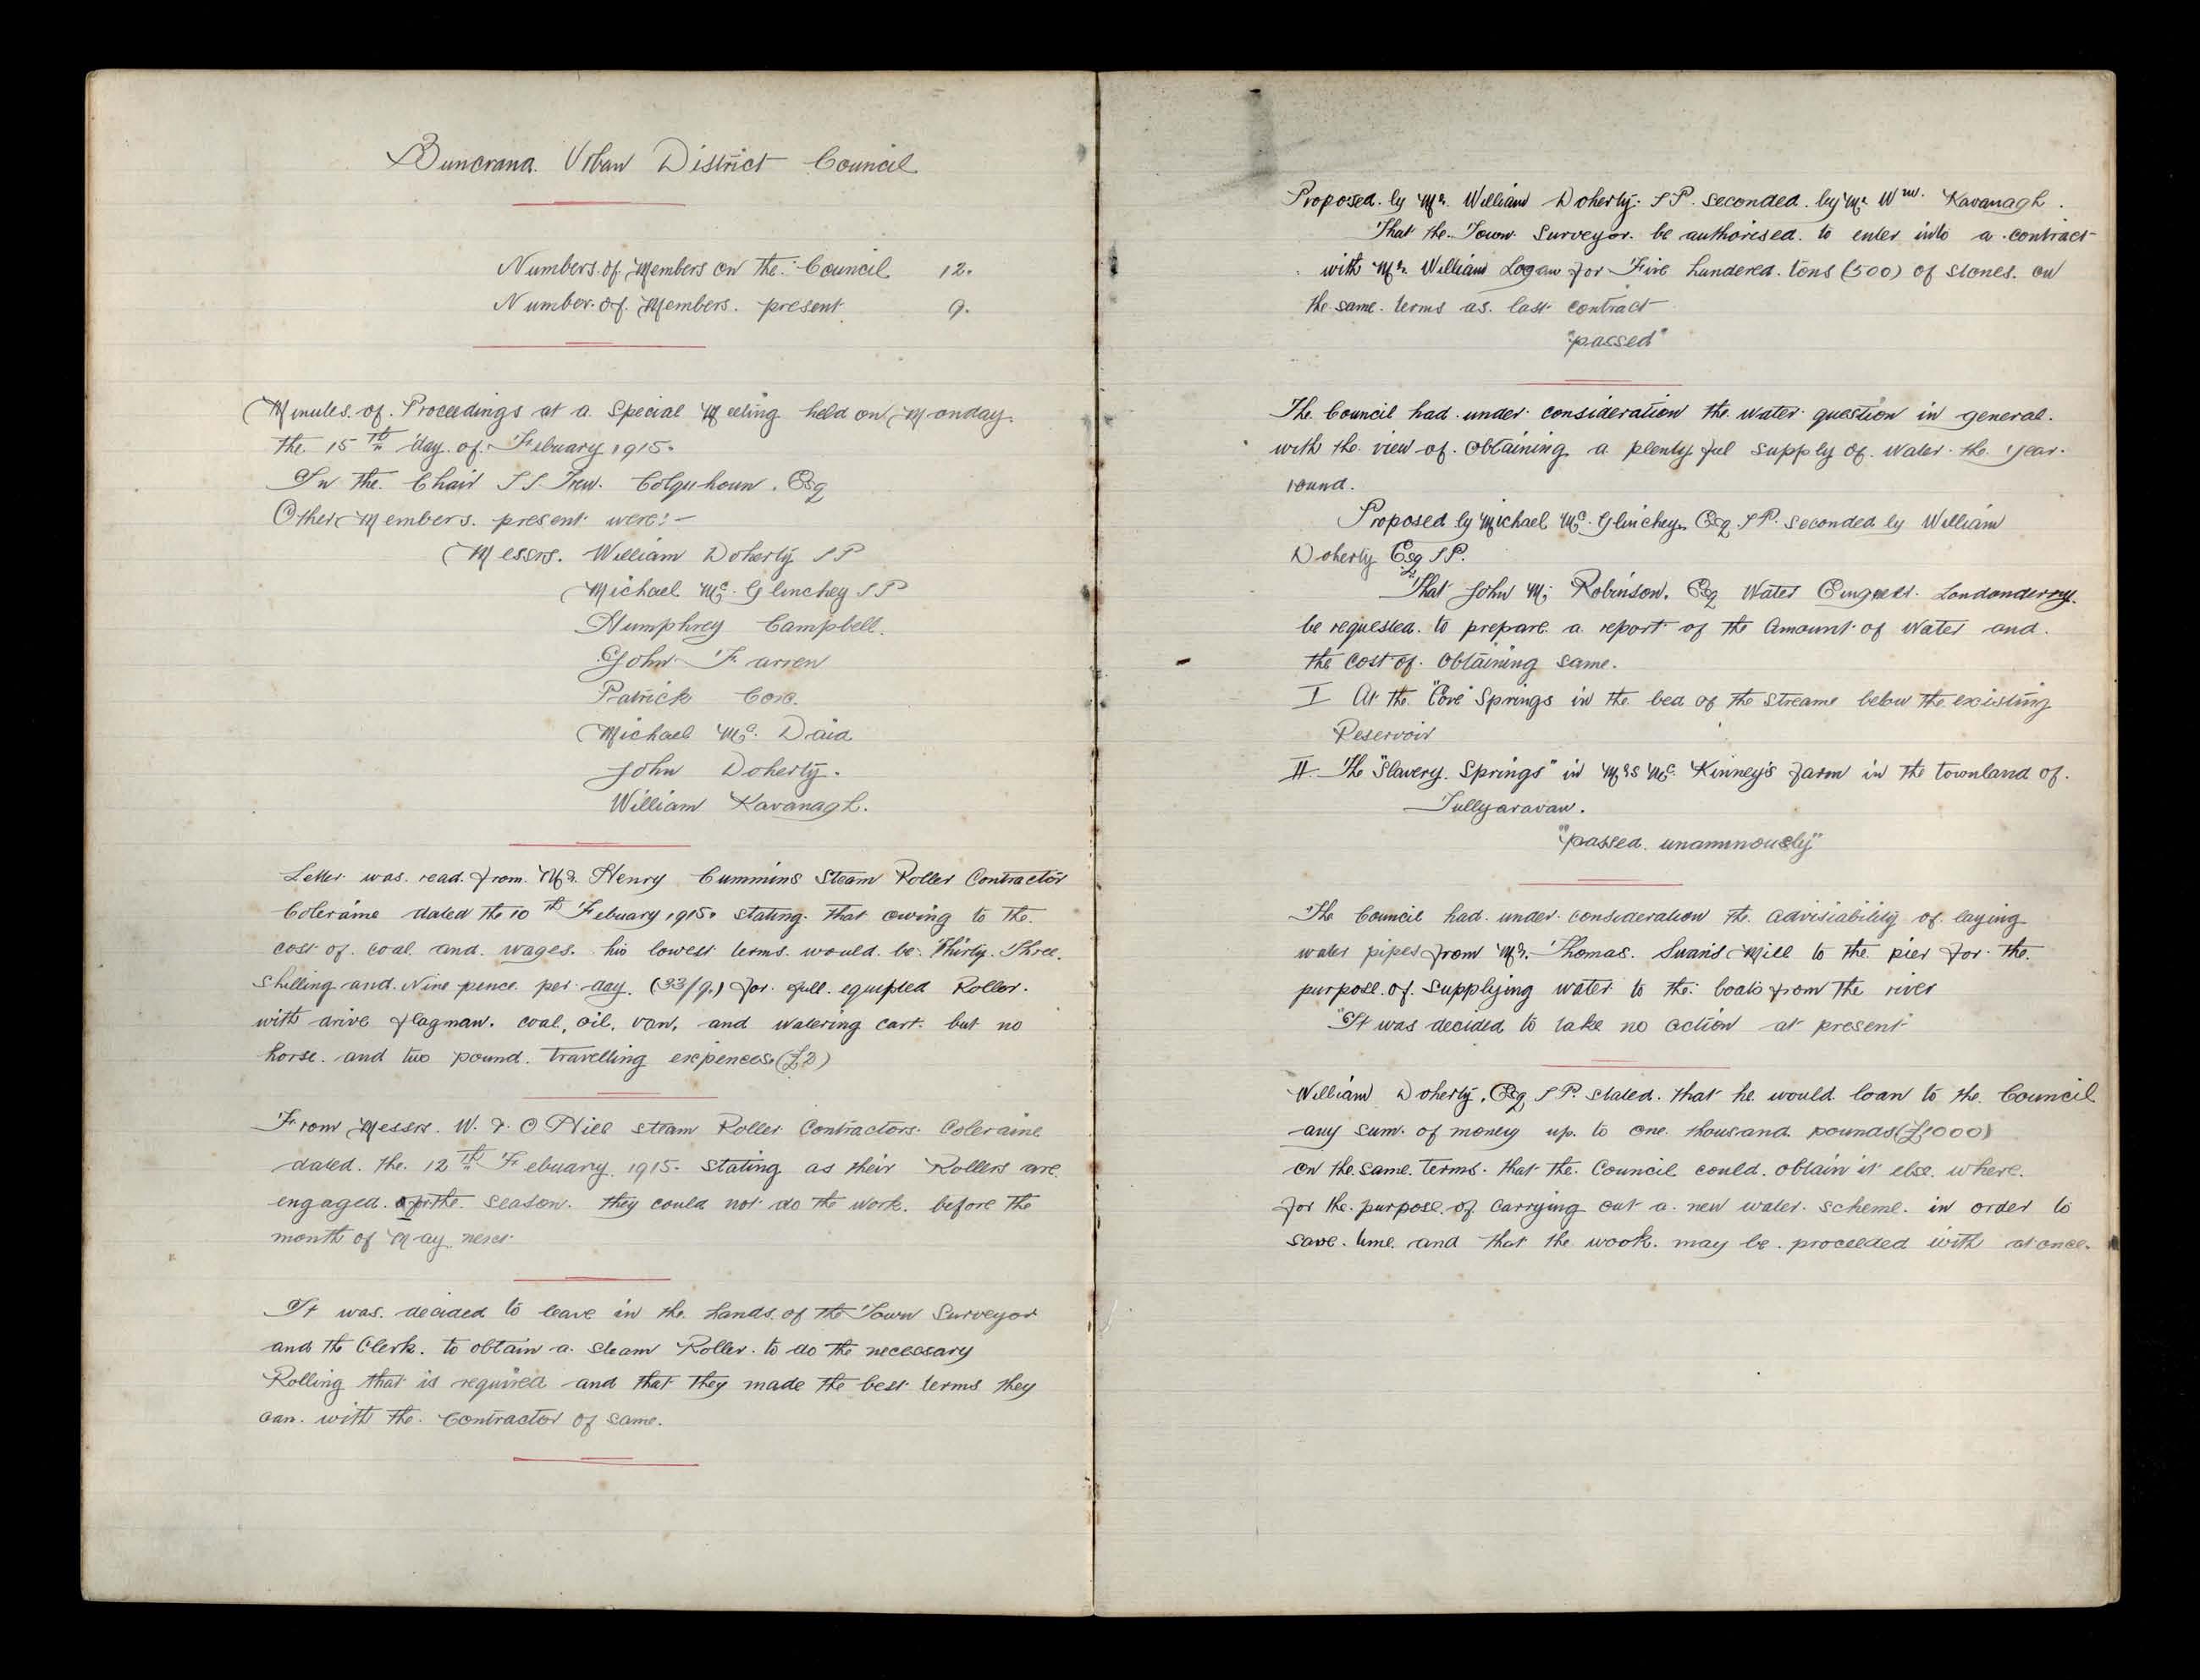 Buncrana Urban District Council
Numbers of Members on the Council 12.
Number of Members present 9.
Minutes of Proceedings at a Special Meeting held on Monday
the 15th day of Febuary 1915.
In the Chair J.J. Trew. Colquhoun. Esq
Other Members present were:-
Messrs. William Doherty J P
Michael Mc. Glinchey J P
Humphrey Campbell.
John Farren
Patrick Coxe.
Michael Mc. Daid
John Doherty.
William Kavanagh.
Letter was read from Mr. Henry Cummins Steam Roller Contractor
Coleraine dated the 10th Febuary 1915. stating that owing to the
cost of coal and wages. his lowest terms would be Thirty Three.
Shilling and Nine pence per day. (33/9.) for full equipted Roller.
with drive flagman. coal, oil, van, and watering cart. but no
horse. and two pound travelling expences (£2)
From Messrs. W. & O Niee Steam Roller Contractors Coleraine
dated. the 12th Febuary. 1915. stating as their Rollers are
engaged for the season. they could not do the work before the
month of May next
It was decided to leave in the hands of the Town Surveyor
and the Clerk. to obtain a steam Roller. to do the necessary
Rolling that is required and that they made the best terms they
can. with the Contractor of same.
Proposed by Mr. William Doherty J P. seconded by Mr Wm. Kavanagh.
That the Town Surveyor be authorised to enter into a contract
with Mr. William Logan for Five hundered tons (500) of stones. on
the same terms as last contract
"passed"
The Council had under consideration the water question in general.
with the view of obtaining a plenty ful supply of water the year.
round.
Proposed by Michael Mc. Glinchey Esq. J P. seconded by William
Doherty Esq J P.
That John M. Robinson. Esq Water Enigneer Londonderry.
be requested to prepare a report of the Amount of Water and
the cost of obtaining same.
I At the "Cove" Springs in the bed of the streame below the existing
Reservoir
II. The "Slavery. Springs" in Mrs Mc. Kinney's farm in the townland of.
Tullyaravan.
"passed unaminously"
The Council had under consideration the advisiability of laying
water pipes from Mr. Thomas. Swan's Mill to the pier for the
purpose of supplying water to the boats from the river
"It was decided to take no action at present
William Doherty. Esq J P. stated. that he would loan to the Council
any sum of money up to one thousand pounds (£1000)
on the same terms. that the Council could obtain it else where.
for the purpose of carrying out a new water scheme. in order to
save time and that the wook. may be proceeded with at once.